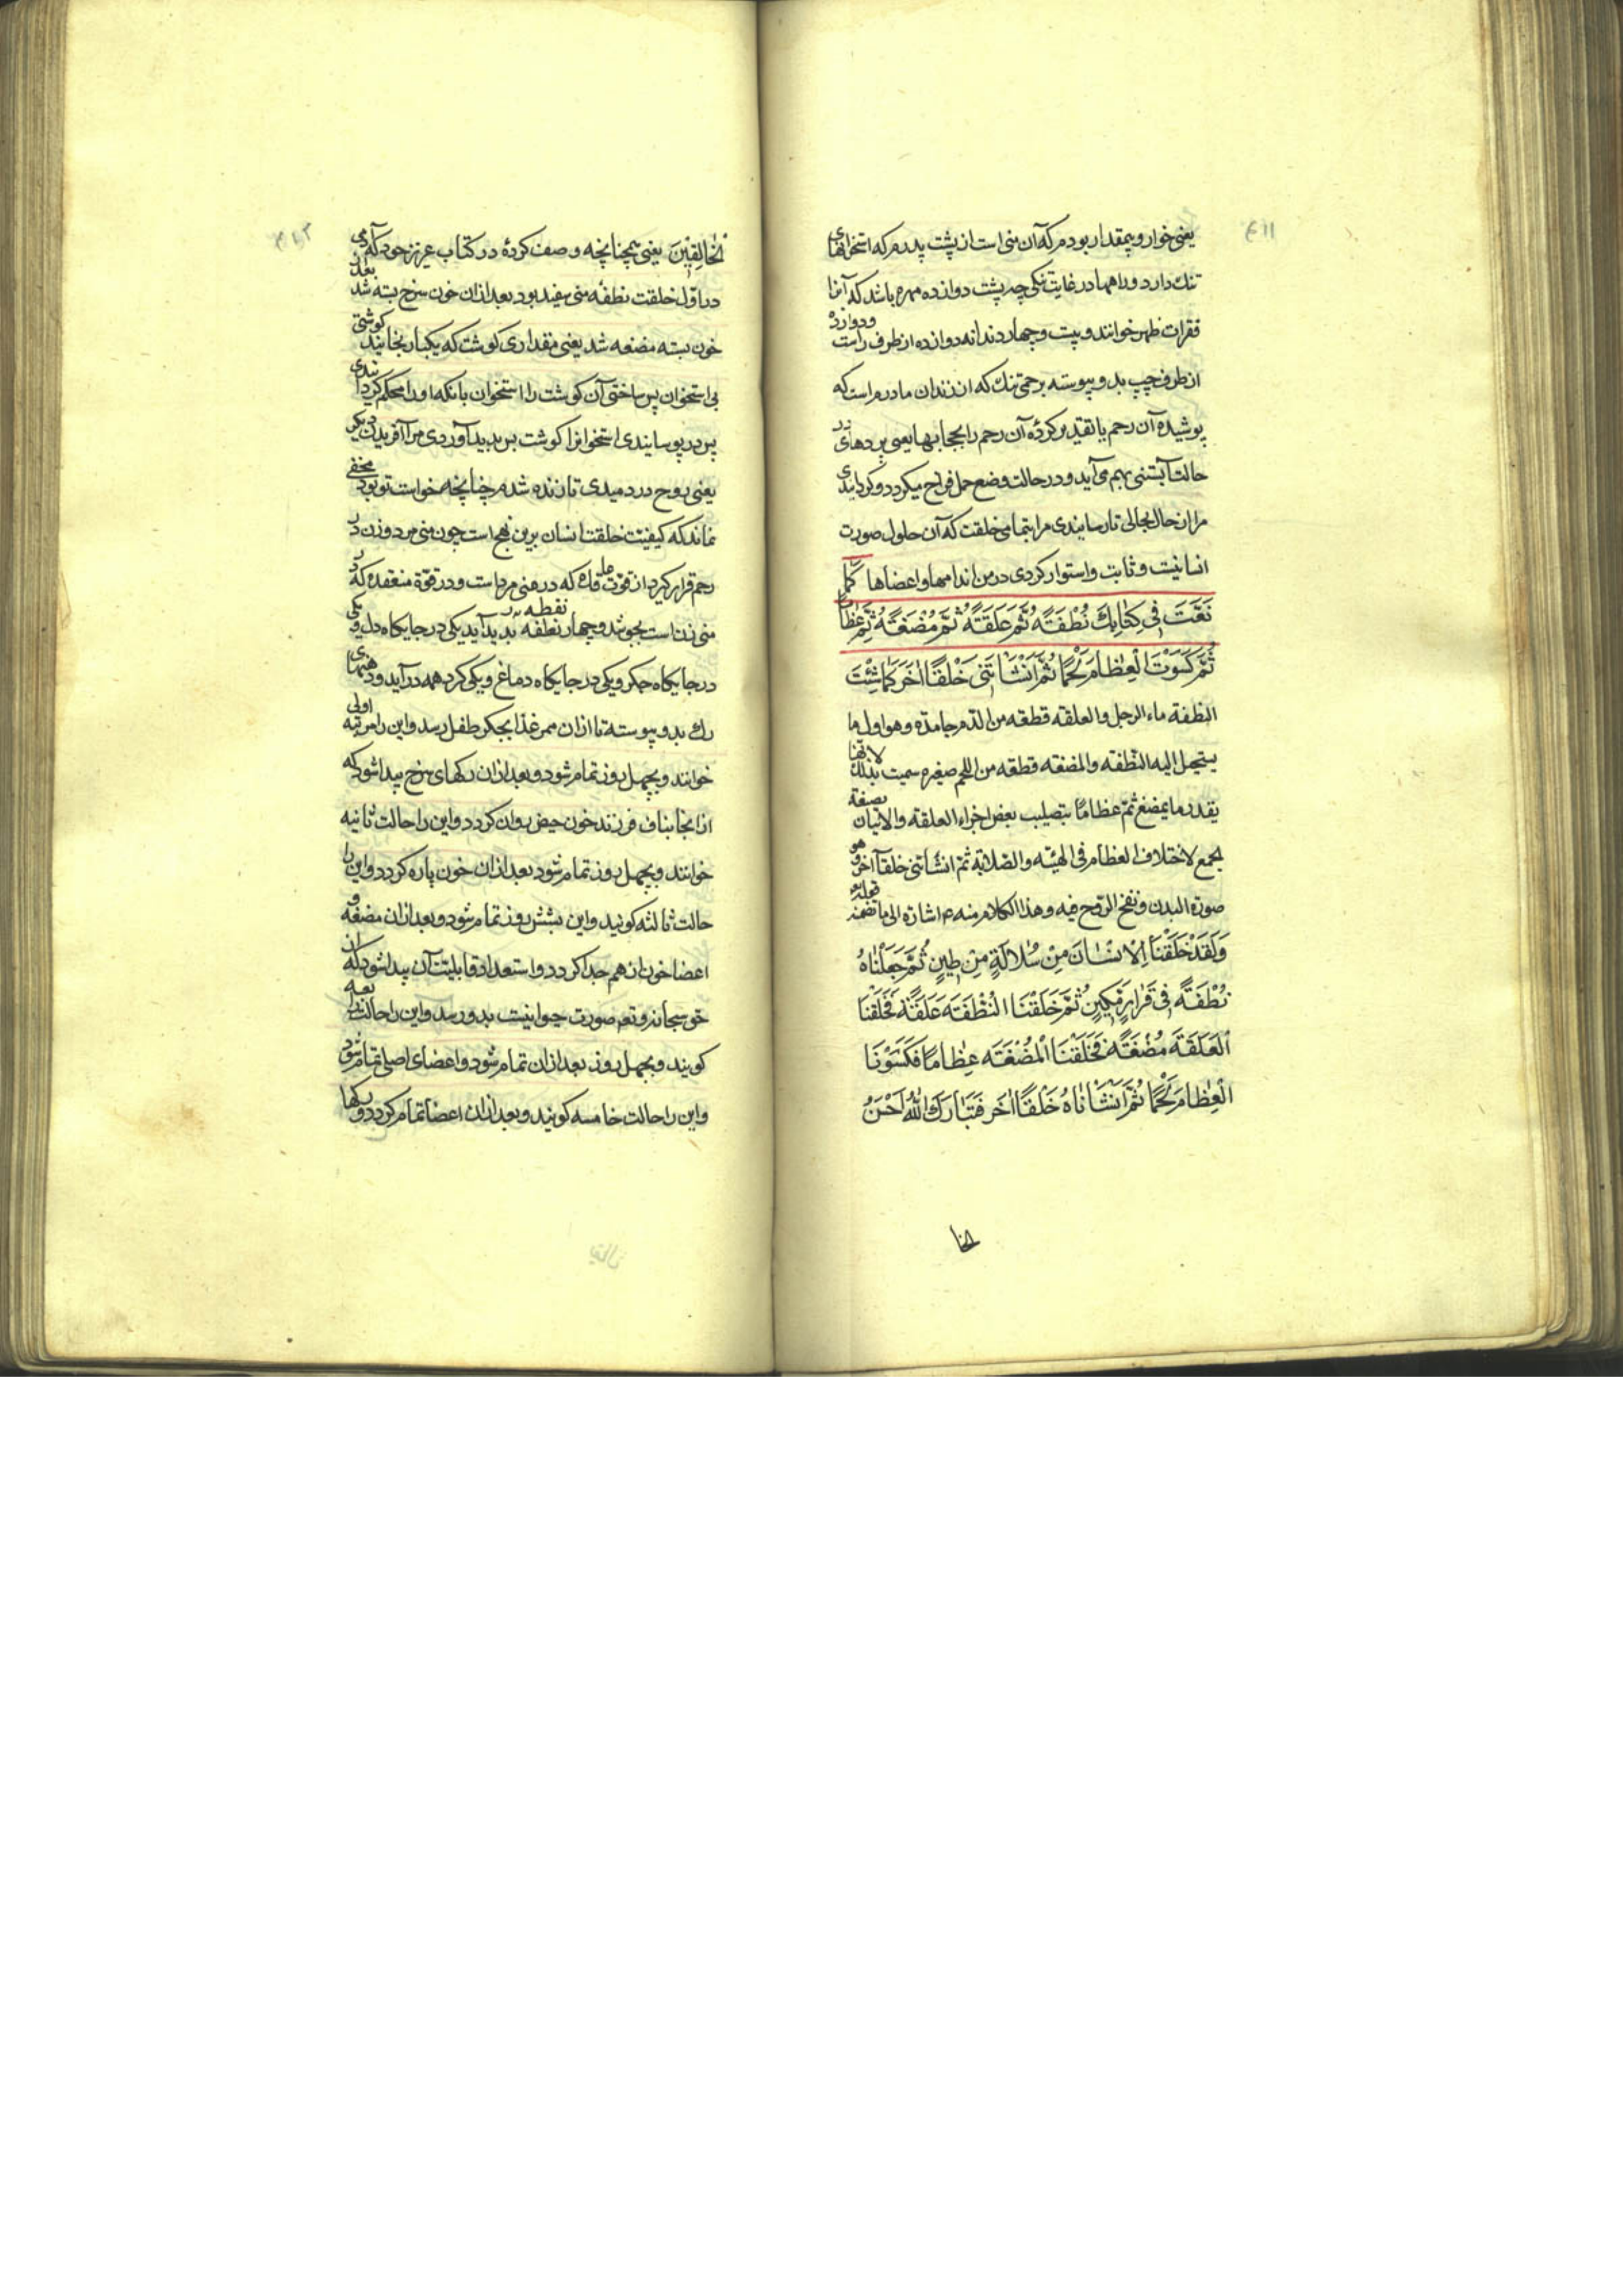 ۴۱۱
یعنی خوار و بیمقدار بودم که آن منی است از پشت پدرم که استخوانهای
تنک دارد و راهها در غایت تنکی چه پشت دوازده مهره باشد که آنرا
فقرات ظهر خوانند و بیست و چهار دندانه دوازده از طرف راست و دوازده
از طرف چپ بدو پیوسته برحمی تنک که از زندان مادرم راست که
پوشیدهٔ آن رحم یا تقدیر کردهٔ آن رحم را بحجابها یعنی پردهای در
حالت آبستنی بهم می‌آید و در حالت وضع حمل فراخ میکردد و کردایندی
مرا از حال بحالی تا رسایندی مرا بتمامی خلقت که آن حلول صورت
انسانیت و ثابت و استوار کردی در من اندامها و اعضاها کما
نَعَتَّ فِی کِتَابِكَ نُطْفَةً ثُمَّ عَلَقَةً ثُمَّ مُضْغَةً ثُمَّ عِظَامًا
ثُمَّ کَسَوْتَ الْعِظَامَ لَحْمًا ثُمَّ اَنْشَاْتَنِی خَلْقًا اٰخَرَ کَمَا شِئْتَ
النطفة ماء الرجل والعلقه قطعه من الدم جامدة وهو اول ما
یستحیل الیه النطفه والمضغه قطعه من اللحم صغیره سمیت بذلك لانها
بقدر ما یمضغ ثم عظاما بتصلیب بعض اجزاء العلقه والاتیان بصیغة
الجمع لاختلاف العظام فی الهیئه والصلابة ثم انشاتنی خلقا آخر وهو
صورة البدن ونفخ الروح فیه وهذا الکلام منه ع اشارة الی ما تضمنه قوله
وَلَقَدْ خَلَقْنَا الْاِنْسَانَ مِنْ سُلَالَةٍ مِنْ طِینٍ ثُمَّ جَعَلْنَاهُ
نُطْفَةً فِی قَرَارٍ مَکِینٍ ثُمَّ خَلَقْنَا النُّطْفَةَ عَلَقَةً فَخَلَقْنَا
الْعَلَقَةَ مُضْغَةً فَخَلَقْنَا الْمُضْغَةَ عِظَامًا فَکَسَوْنَا
الْعِظَامَ لَحْمًا ثُمَّ اَنْشَاْنَاهُ خَلْقًا اٰخَرَ فَتَبَارَكَ اللّٰهُ اَحْسَنُ
الخا
۴۱۲
الْخَالِقِیْنَ یعنی همچنانچه وصف کردهٔ در کتاب عزیز خود که آدمی
در اول خلقت نطفه منی سفید بود بعد ازان خون سرخ بسته شد بعد
خون بسته مضغه شد یعنی مقداری کوشت که یکبار بخایند کوشتی
بی استخوان پس ساختی آن کوشت را استخوان بانکه او را محکم کردایندی
پس در پوسایندی استخوانرا کوشت پس پدید آوردی مرا آفریدن دیکر
یعنی روح در دمیدی تا زنده شدم چنانچه خواست تو بود مخفی
نماند که کیفیت خلقت انسان برین نهج است چون منی مرد و زن در
رحم قرار کیرد از قوت عاقده که در منی مرد است و در قوة منعقده که در
منی زن است بجوشد و چهار نقطه پدید آید یکی در جایکاه دل و یکی
در جایکاه جکر و یکی در جایکاه دماغ و یکی کرد همه در آید و
رك بدو پیوسته تا ازان ممر غذا بجکر طفل رسد و این را مرتبه اولی
خوانند و بچهل روز تمام شود و بعد ازان رکهای سرخ پیدا شود که
ازانجا بناف فرزند خون حیض روان کردد و این را حالت ثانیه
خوانند و بچهل روز تمام شود بعد ازان خون پاره کردد و این را
حالت ثالثه کویند و این بشش روز تمام شود و بعد ازان مضغه و
اعضا خون از هم جدا کردد و استعداد قابلیت آن پیدا شود که از
حق سبحانه و تعالی صورت حیوانیت بدو رسد و این را حالت رابعه
کویند و بچهل روز بعد ازان تمام شود و اعضای اصلی تمام شود
و این را حالت خامسه کویند و بعد ازان اعضا تمام کردد و رکها